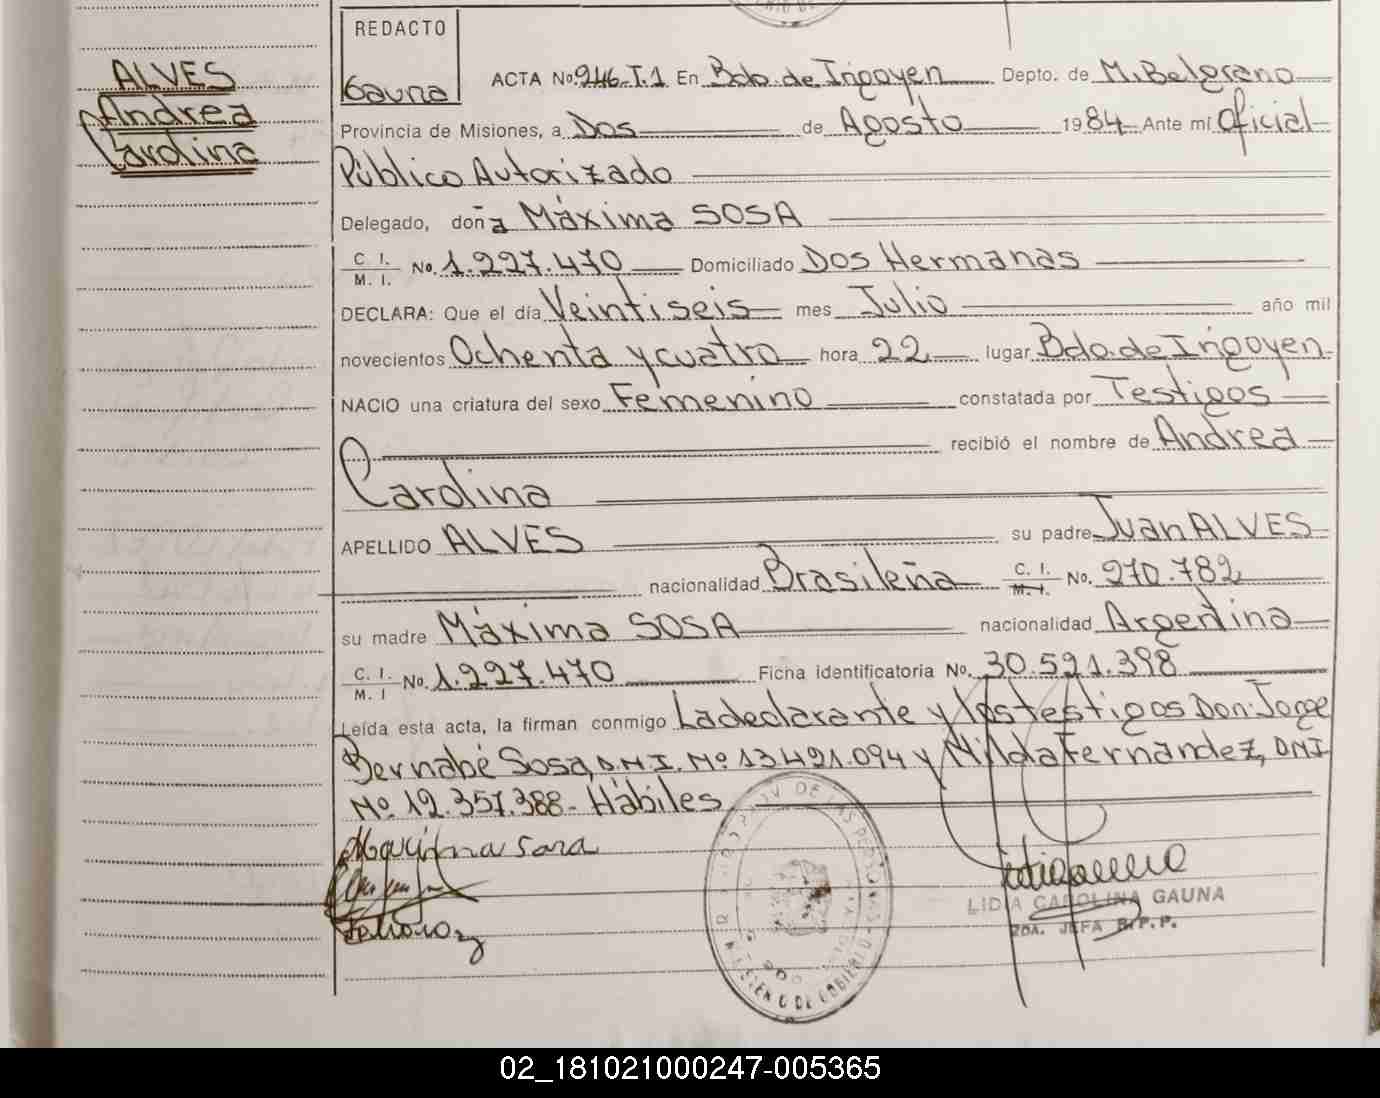 REDACTO
Gauna
ALVES
Andrea
Carolina
ACTA No. 946-T.1 En Bdo. de Irigoyen Depto. de M. Belgrano
Provincia de Misiones, a Dos de Agosto 1984 Ante mí Oficial
Público Autorizado
Delegado, doña Máxima SOSA
C. I. M. I. No. 1.227.470 Domiciliado Dos Hermanas
DECLARA: Que el día Veintiseis mes Julio año mil
novecientos Ochenta y cuatro hora 22 lugar Bdo. de Irigoyen
NACIO una criatura del sexo Femenino constatada por Testigos
recibió el nombre de Andrea
Carolina
APELLIDO ALVES su padre Juan ALVES
nacionalidad Brasileña C. I. M. I. No. 270.782
su madre Máxima SOSA nacionalidad Argentina
C. I. M. I No. 1.227.470 Ficha identificatoria No. 30.521.398
Leída esta acta, la firman conmigo La declarante y los testigos Don: Jorge
Bernabé Sosa, D.N.I. Nº 13.421.094 y Nilda Fernandez, DNI
Nº 12.357.388- Hábiles
LIDIA CAROLINA GAUNA
2DA. JEFA R.P.P.
02_181021000247-005365